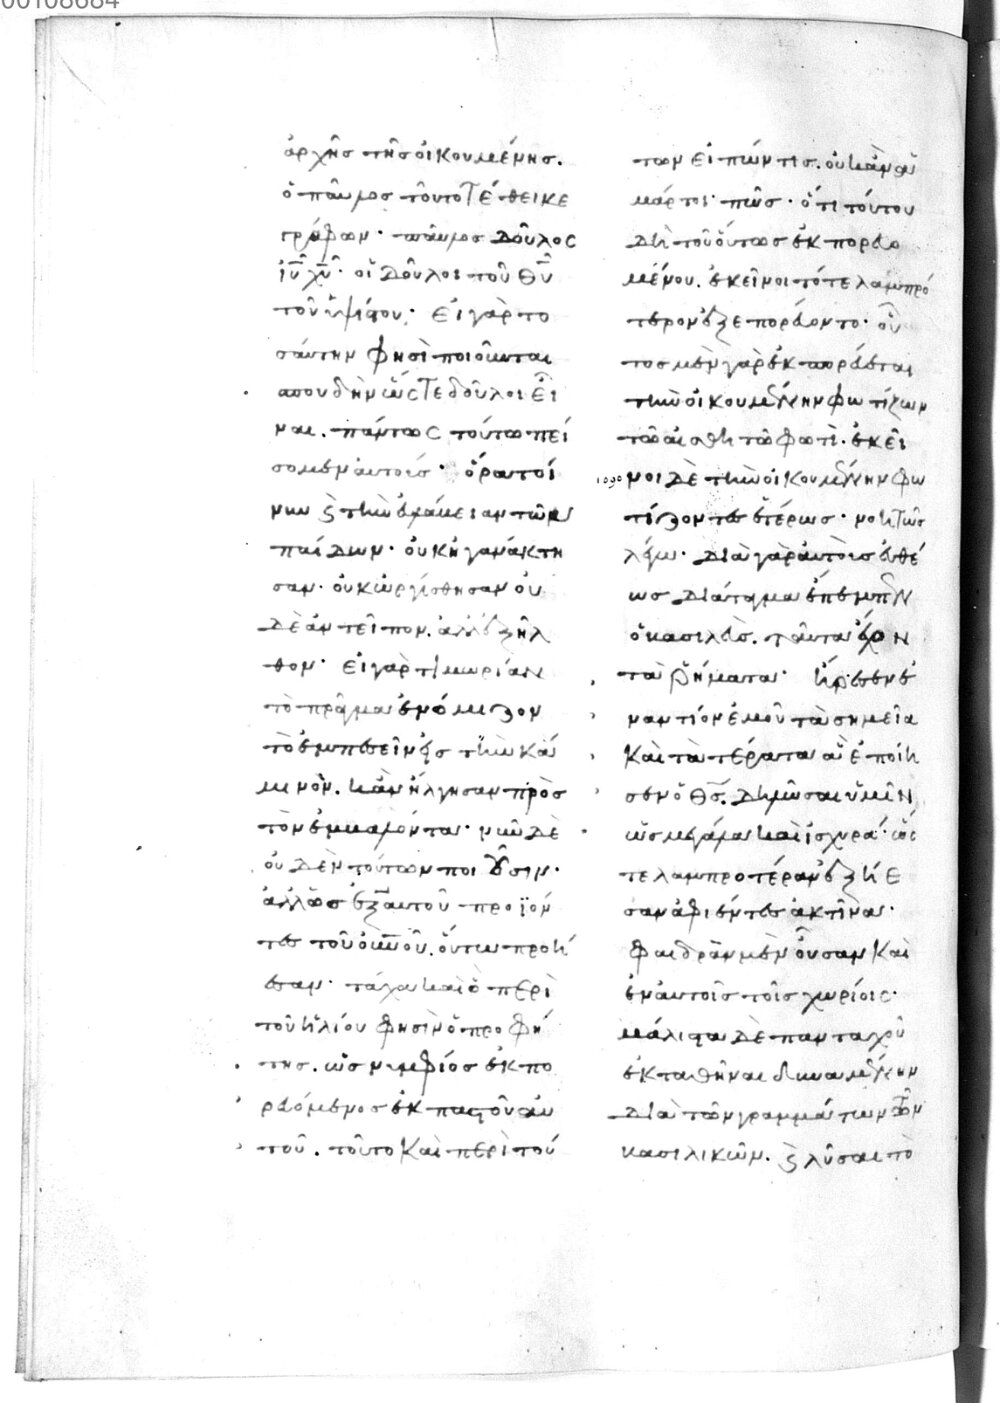 00108684
ἀρχῆς τῆς οἰκουμένης.
ὁ παῦλος τοῦτο τέθεικε
γράφων· παῦλος δοῦλος
ἰῦ χῦ· οἱ δοῦλοι τοῦ θῦ
τοῦ ὑψίστου· εἰ γὰρ το
σαύτην φησὶ ποιοῦνται
σπουδὴν ὥστε δοῦλοι εἶ
ναι. πάντως τούτω πεί
σομεν αὐτούς· ὅρα τοί
νυν ϗ τὴν ἐπιείκειαν τῶν
παίδων· οὐκ ἠγανάκτη
σαν· οὐκ ὠργίσθησαν οὐ
δὲ ἀντεῖπον. ἀλλ' ἐξῆλ
θον· εἰ γὰρ τιμωρίαν
τὸ πρᾶγμα ἐνόμιζον
τὸ ἐμπεσεῖν εἰς τὴν κά
μινον. κἂν ἤλγησαν πρὸς
τὸν ἐκκαλοῦντα· νυν δὲ
οὐδὲν τούτων ποιοῦσιν·
ἀλλ' ὡς ἐξ αὐτοῦ προϊόν
τες τοῦ οὐνοῦ. οὕτω προή
εσαν· τάχα καὶ ὃ περὶ
τοῦ ἡλίου φησὶν ὁ προφή
της. ὡς νυμφίος ἐκπο
ρευόμενος ἐκ παστοῦ αὐ
τοῦ. τοῦτο καὶ περὶ τού
των εἰπών τις. οὐκ ἂν ἁ
μάρτοι· πῶς· ὅτι τούτου
δὴ τοῦ οὕτως ἐκπορευο
μένου. ἐκεῖνοι τότε λαμπρό
τερον ἐξεπορεύοντο· οὗ
τος μὲν γὰρ ἐκπορεύεται
τὴν οἰκουμένην φωτίζων
τῶ αἰσθητῶ φωτὶ· ἐκεῖ
νοι δὲ τὴν οἰκουμένην φω
τίζοντες ἑτέρως· νοητῶς
λέγω· διὰ γὰρ αὐτοὺς εὐθέ
ως διάταγμα ἔπεμπεν
ὁ βασιλεύς. ταῦτα ἔχον
τὰ ῥήματα· ἤρεσεν ἐ
ναντίον ἐμοῦ τὰ σημεῖα
καὶ τὰ τέρατα ἃ ἐποίη
σεν ὁ θς. δηλῶσαι ὑμῖν
ὡς μεγάλα καὶ ἰσχυρά· ὥς
τε λαμπροτέραν ἐξήε
σαν ἀφιέντες ἀκτῖνα·
φαιδρὰν μὲν οὖσαν καὶ
ἐν αὐτοῖς τοῖς χωρίοις·
μάλιστα δὲ πανταχοῦ
ἐκταθῆναι δυναμένην
διὰ τῶν γραμμάτων τῶν
βασιλικῶν. ϗ λῦσαι τὸ